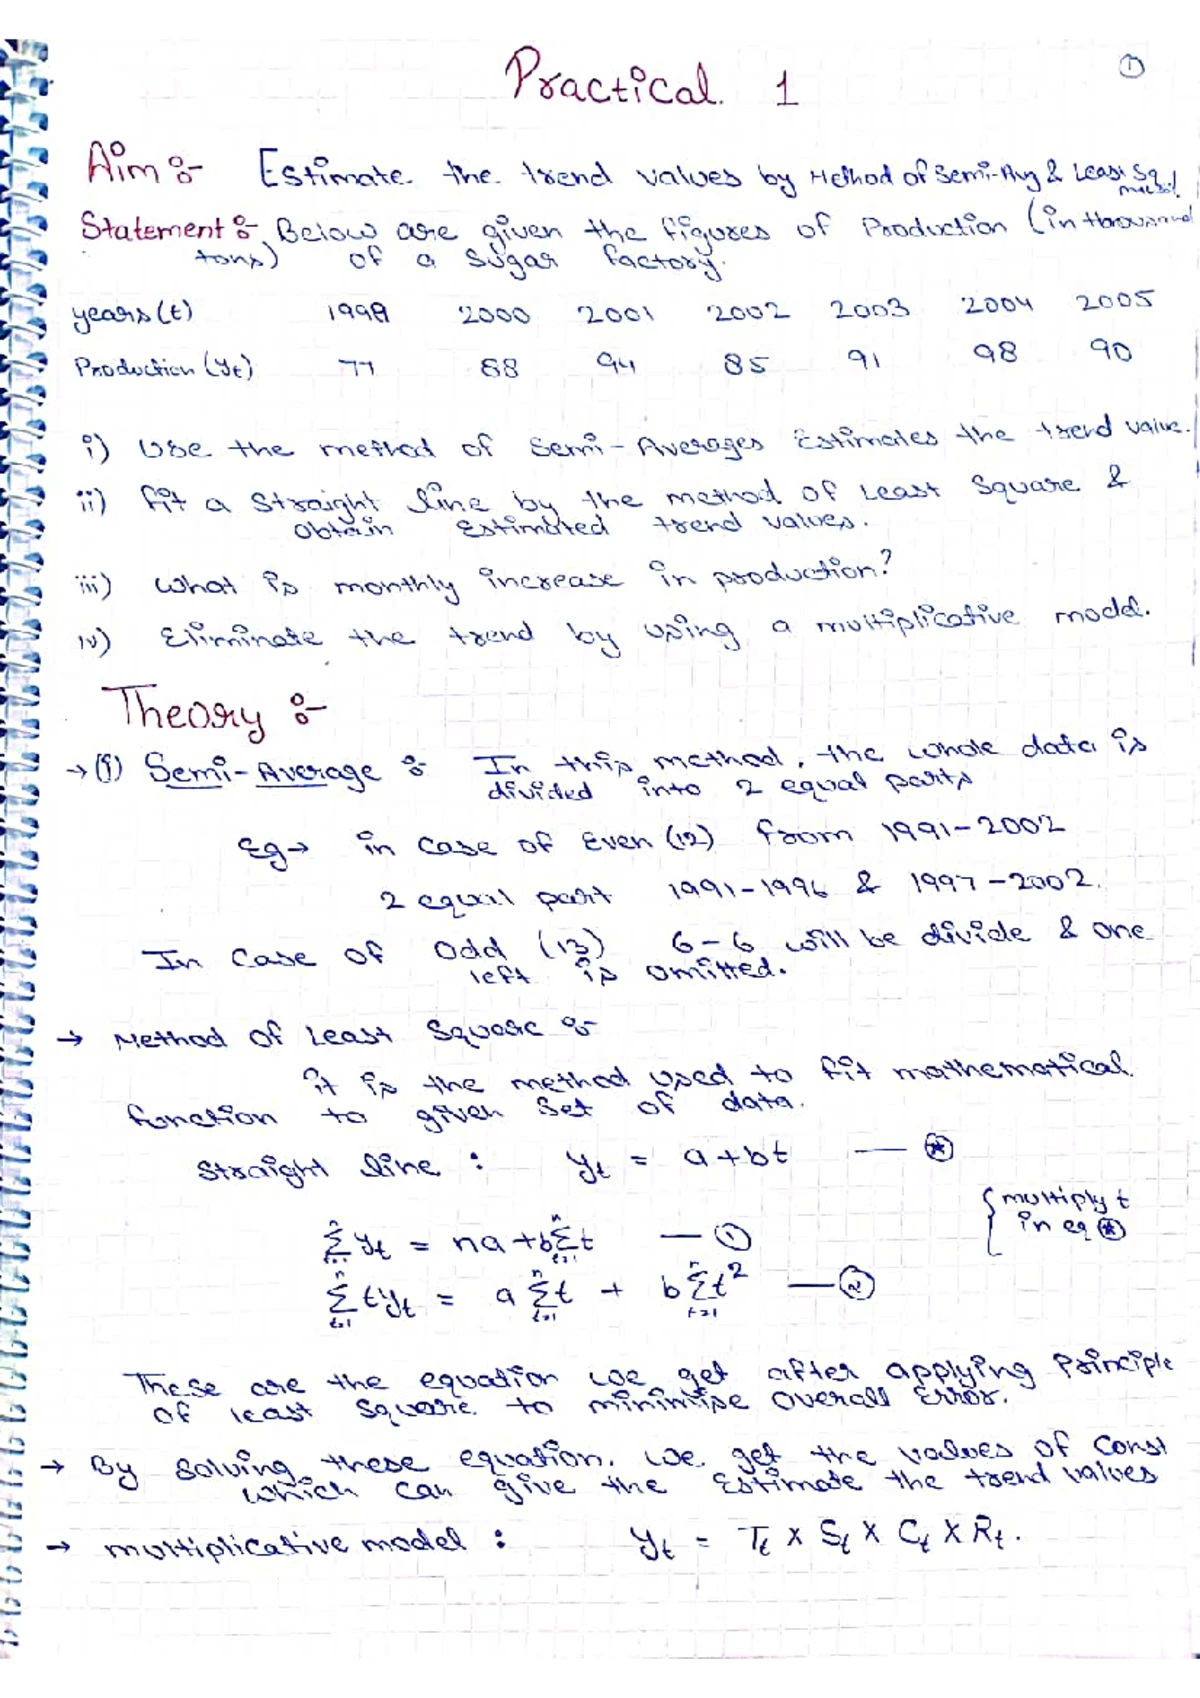 ①
Practical. 1
Aim :- Estimate the trend values by Method of Semi-Avg & Least Sq
Statement :- Below are given the figures of Production (in thousand
tons) of a Sugar factory.
years (t) 1999 2000 2001 2002 2003 2004 2005
Production (yt) 77 88 94 85 91 98 90
i) Use the method of Semi-Averages Estimates the trend value.
ii) fit a Straight line by the method of Least Square &
obtain Estimated trend values.
iii) what is monthly increase in production?
iv) Eliminate the trend by using a multiplicative model.
Theory :-
→ (i) Semi-Average :- In this method, the whole data is
divided into 2 equal parts
Eg → in case of Even (12) from 1991-2002
2 equal part 1991-1996 & 1997-2002.
In Case of Odd (13) 6-6 will be divide & one
left is omitted.
→ Method of Least Square :-
it is the method used to fit mathematical
function to given Set of data.
Straight line : yt = a+bt — ⊛
{ multiply t
in eq ⊛
n∑t=1 yt = na+b n∑t=1 t — ①
n∑t=1 tyt = a n∑t=1 t + b n∑t=1 t² — ②
These are the equation we get after applying Principle
of least square to minimise overall Error.
→ By solving these equation. we get the values of Const
which can give the Estimate the trend values
→ multiplicative model : yt = Tt X St X Ct X Rt.